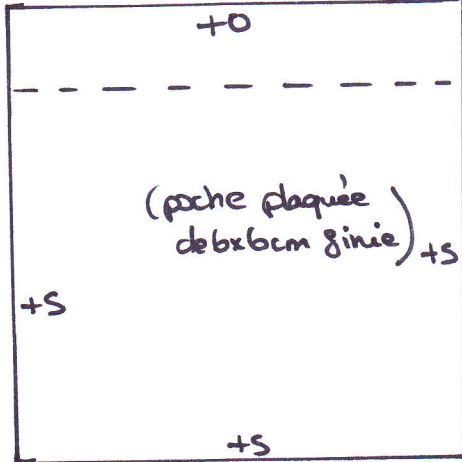 +0
(poche plaquée
de 6x6cm finie)
+S
+S
+S